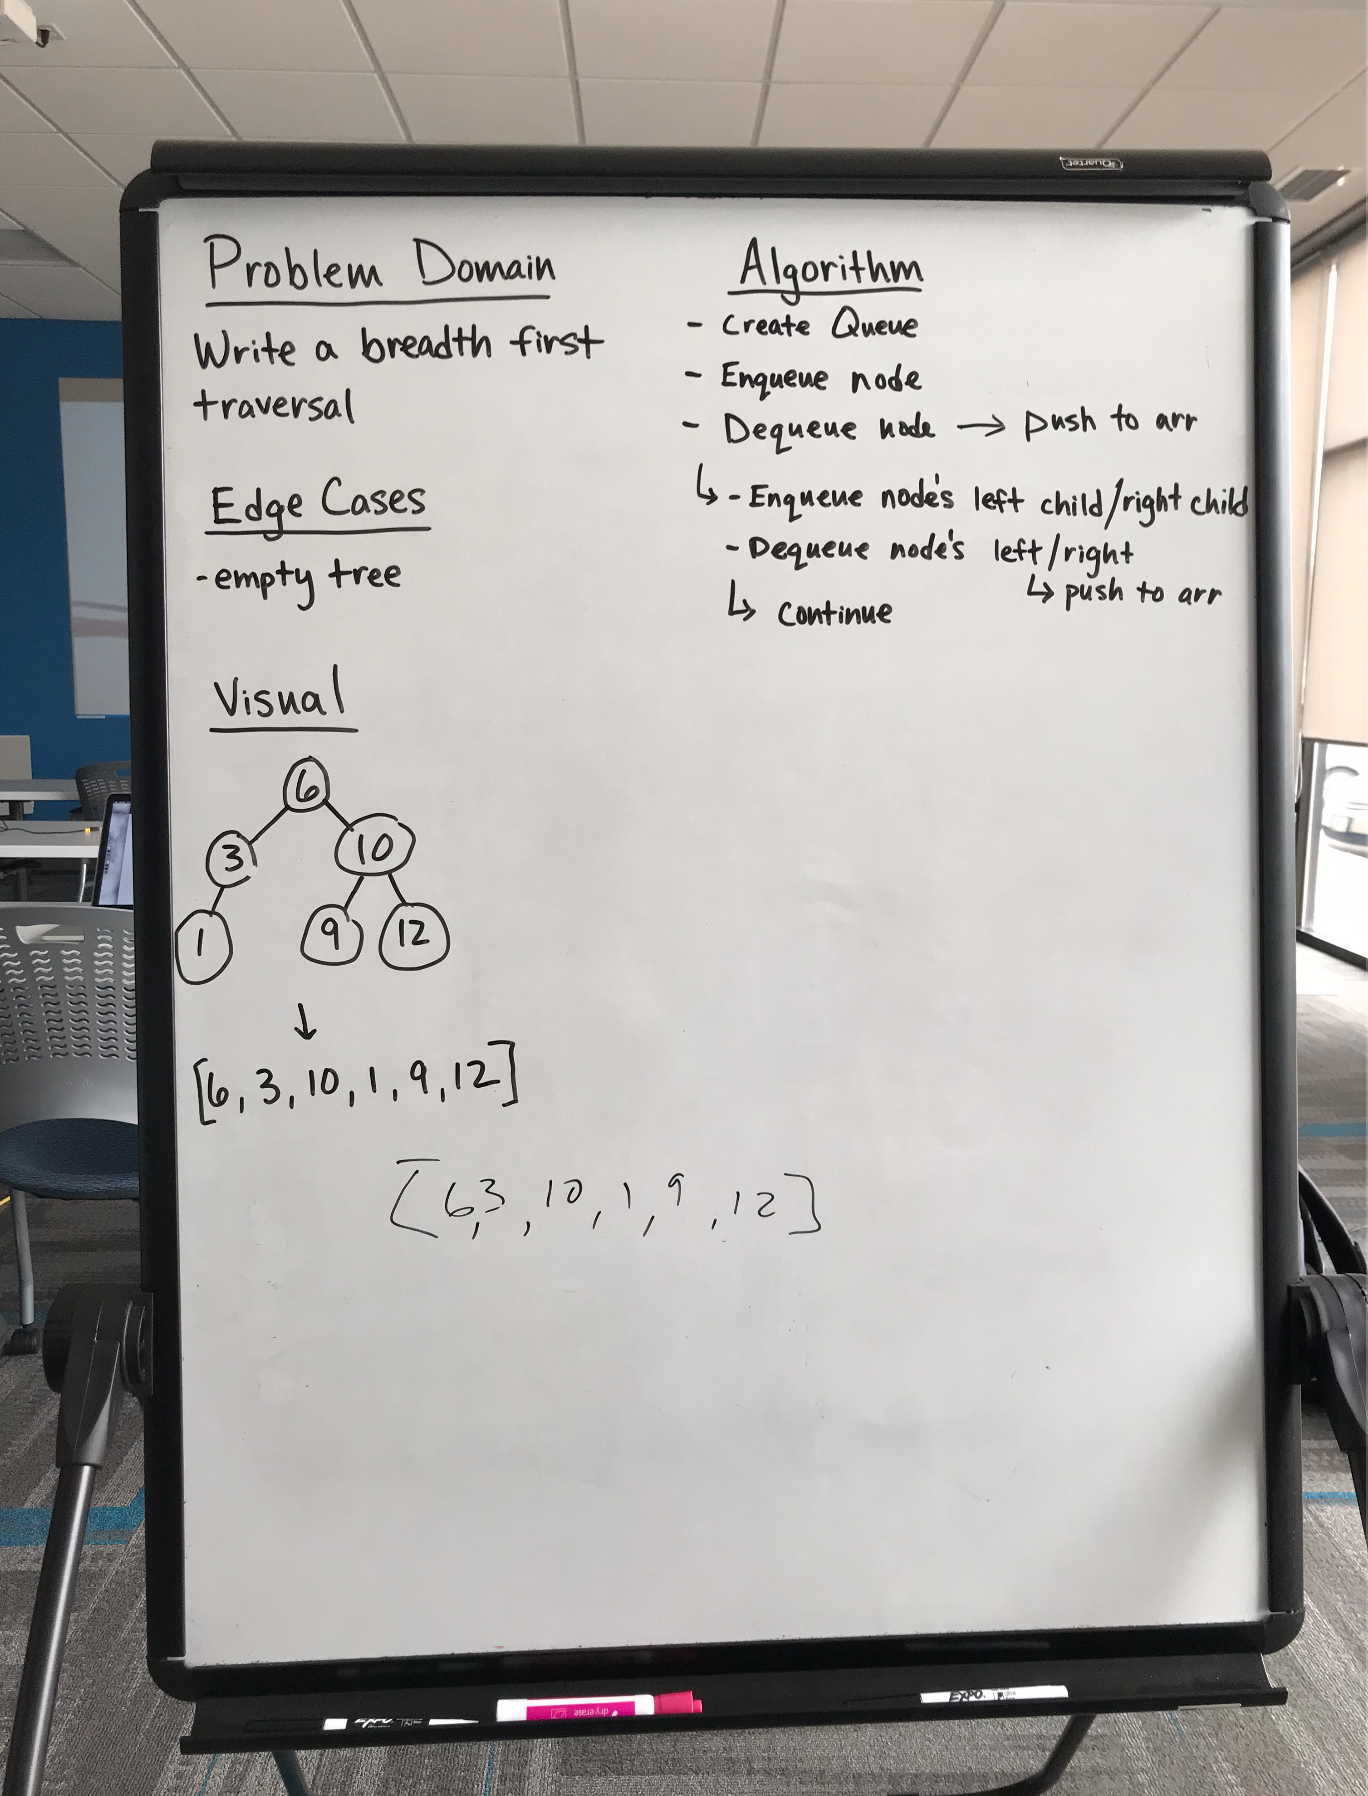 Quartet
Problem Domain
Write a breadth first
traversal
Edge Cases
-empty tree
Visual
6
3 10
1 9 12
↓
[6, 3, 10, 1, 9, 12]
[6,3, 10, 1, 9, 12]
Algorithm
- Create Queue
- Enqueue node
- Dequeue node → push to arr
↳ - Enqueue node's left child/right child
- Dequeue node's left/right
↳ push to arr
↳ continue
EXPO
dry erase
EXPO